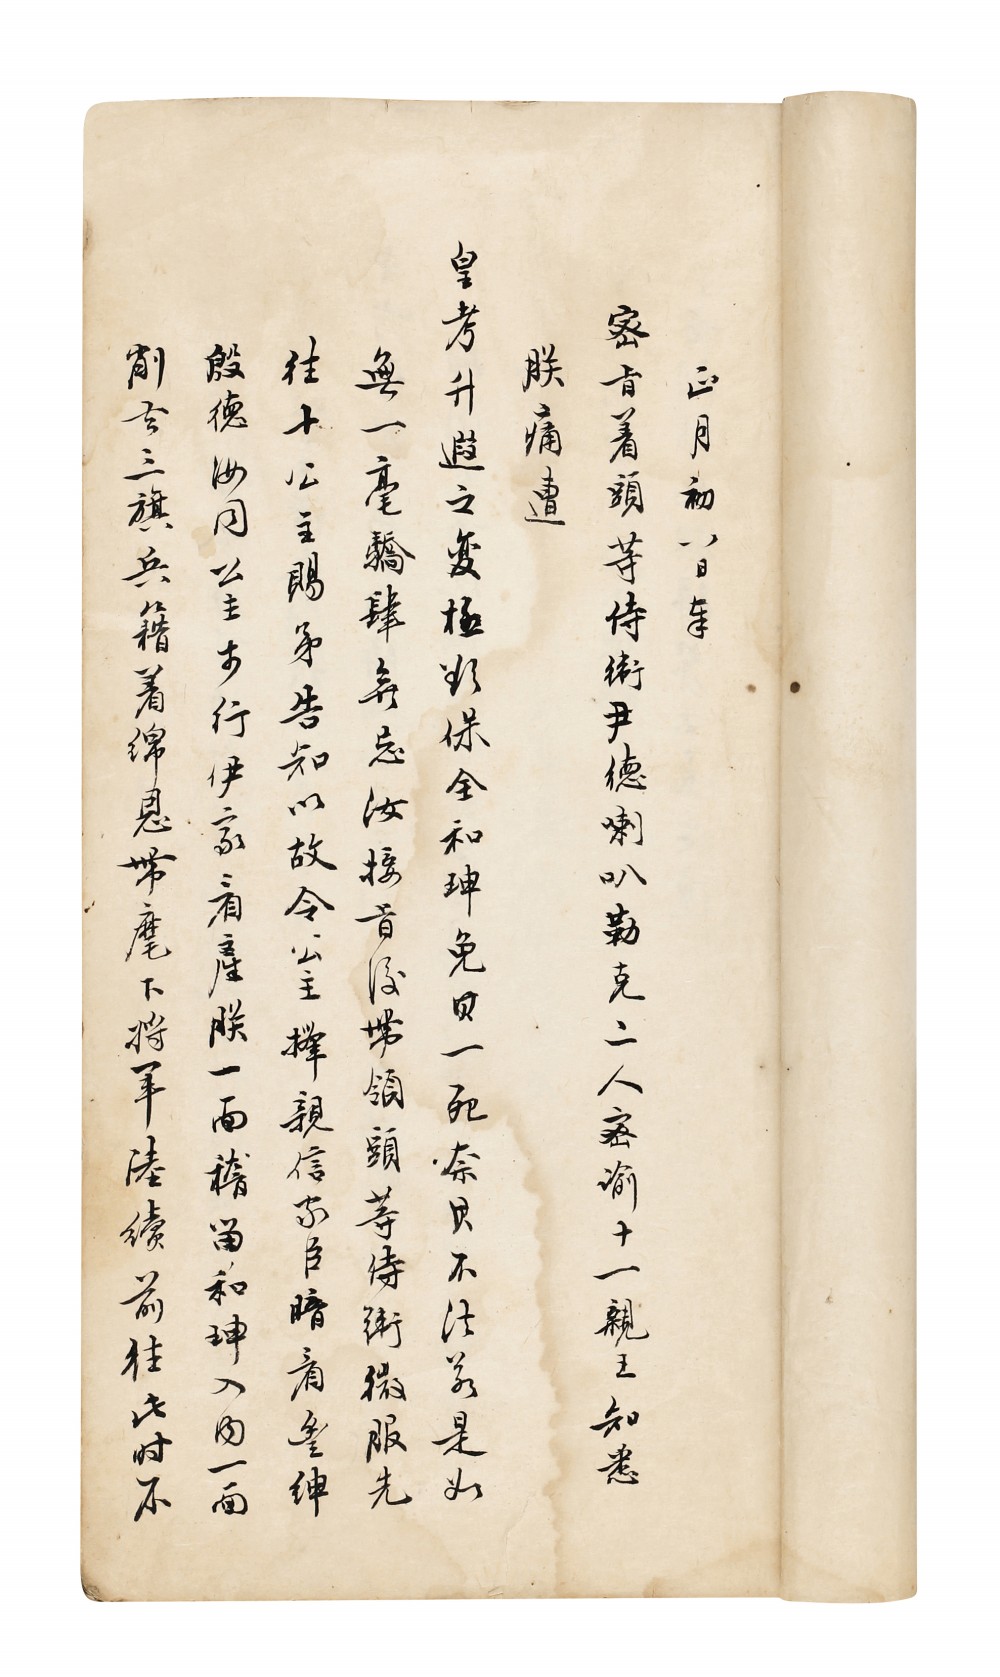 正月初八日奉
密旨着頭等侍衛尹德喇叭勒克二人密諭十一親王知悉
朕痛遭
皇考升遐之变極欲保全和珅免其一死奈其不法若是如
無一毫驕肆弃忌汝接旨後帶領頭等侍衛微服先
往十公主賜第告知以故令公主擇親信家臣暗看豊紳
殷德汝同公主步行伊家看產朕一面稽留和珅入內一面
削去三旗兵籍着綿恩帶麾下將軍陸續前往此时不